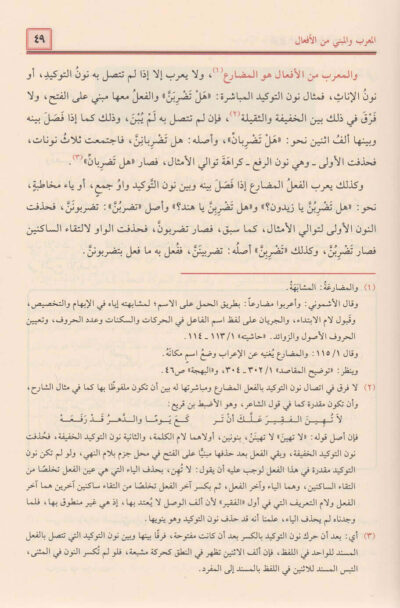 المعرب والمبني من الأفعال
٤٩
والمعرب من الأفعال هو المضارع(١)، ولا يعرب إلا إذا لم تتصل به نونُ التوكيد، أو
نونُ الإناث، فمثال نون التوكيد المباشرة: «هَلْ تَضْرِبَنَّ» والفعل معها مبني على الفتح، ولا
فَرْقَ في ذلك بين الخفيفة والثقيلة(٢)، فإن لم تتصل به لم يُبْنَ، وذلك كما إذا فَصَلَ بينه
وبينها ألفُ اثنين نحو: «هَلْ تَضْرِبانِّ»، وأصله: هل تَضْرِبانِنَّ، فاجتمعت ثلاث نونات،
فحذفت الأولى ـ وهي نون الرفع ـ كراهَةَ توالي الأمثال، فصار «هل تَضْرِبانِّ»(٣).
وكذلك يعرب الفعلُ المضارع إذا فَصَلَ بينه وبين نون التَّوكيد واوُ جمعٍ، أو ياء مخاطبةٍ،
نحو: «هل تَضْرِبُنَّ يا زيدون؟» و«هل تَضْرِبِنَّ يا هند؟» وأصل «تضربُنَّ»: تضربونَنَّ، فحذفت
النون الأولى لتوالي الأمثال، كما سبق، فصار تضربونَّ، فحذفت الواو لالتقاء الساكنين
فصار تَضْرِبُنَّ، وكذلك «تَضْرِبِنَّ» أصلُه: تضربينَنَّ، ففُعل به ما فعل بتضربوننَّ.
(١) والمضارعَةُ: المشابَهَةُ.
وقال الأشموني: وأعربوا مضارعاً: بطريق الحمل على الاسم؛ لمشابهته إياه في الإبهام والتخصيص،
وقبول لام الابتداء، والجريان على لفظ اسم الفاعل في الحركات والسكنات وعدد الحروف، وتعيين
الحروف الأصول والزوائد. «حاشيته» ١١٣/١ ـ ١١٤.
وقال ١١٥/١: والمضارع يُغنيه عن الإعراب وضعُ اسمٍ مكانَهُ.
وينظر: «توضيح المقاصد» ٣٠٢/١ ـ ٣٠٤، و«البهجة» ص٤٦.
(٢) لا فرق في اتصال نون التوكيد بالفعل المضارع ومباشرتها له بين أن تكون ملفوظًا بها كما في مثال الشارح،
وأن تكون مقدرة كما في قول الشاعر، وهو الأضبط بن قريع:
لَا تُهِينَ الفَقِيرَ عَلَّكَ أَنْ تَرْ كَعَ يَومًا وَالدَّهرُ قَدْ رَفَعَهُ
فإن أصل قوله: «لا تهينَ» لا تهينَنْ، بنونين، أولاهما لام الكلمة، والثانية نون التوكيد الخفيفة، فحُذفت
نون التوكيد الخفيفة، وبقي الفعل بعد حذفها مبنيًّا على الفتح في محل جزم بلام النهي، ولو لم تكن نون
التوكيد مقدرة في هذا الفعل لوجب عليه أن يقول: لا تُهن، بحذف الياء التي هي عين الفعل تخلصًا من
التقاء الساكنين، وهما الياء وآخر الفعل، ثم بكسر آخر الفعل تخلصًا من التقاء ساكنين آخرين هما آخر
الفعل ولام التعريف التي في أول «الفقير» لأن ألف الوصل لا يُعتد بها، إذ هي غير منطوق بها، فلما
وجدناه لم يحذف الياء، علمنا أنه قد حذف نون التوكيد وهو ينويها.
(٣) أي: بعد أن حرك نون التوكيد بالكسر بعد أن كانت مفتوحة، فرقًا بينها وبين نون التوكيد التي تتصل بالفعل
المسند للواحد في اللفظ، فإن ألف الاثنين تظهر في النطق كحركة مشبعة، فلو لم تُكسر النون في المثنى،
التبس المسند للاثنين في اللفظ بالمسند إلى المفرد.